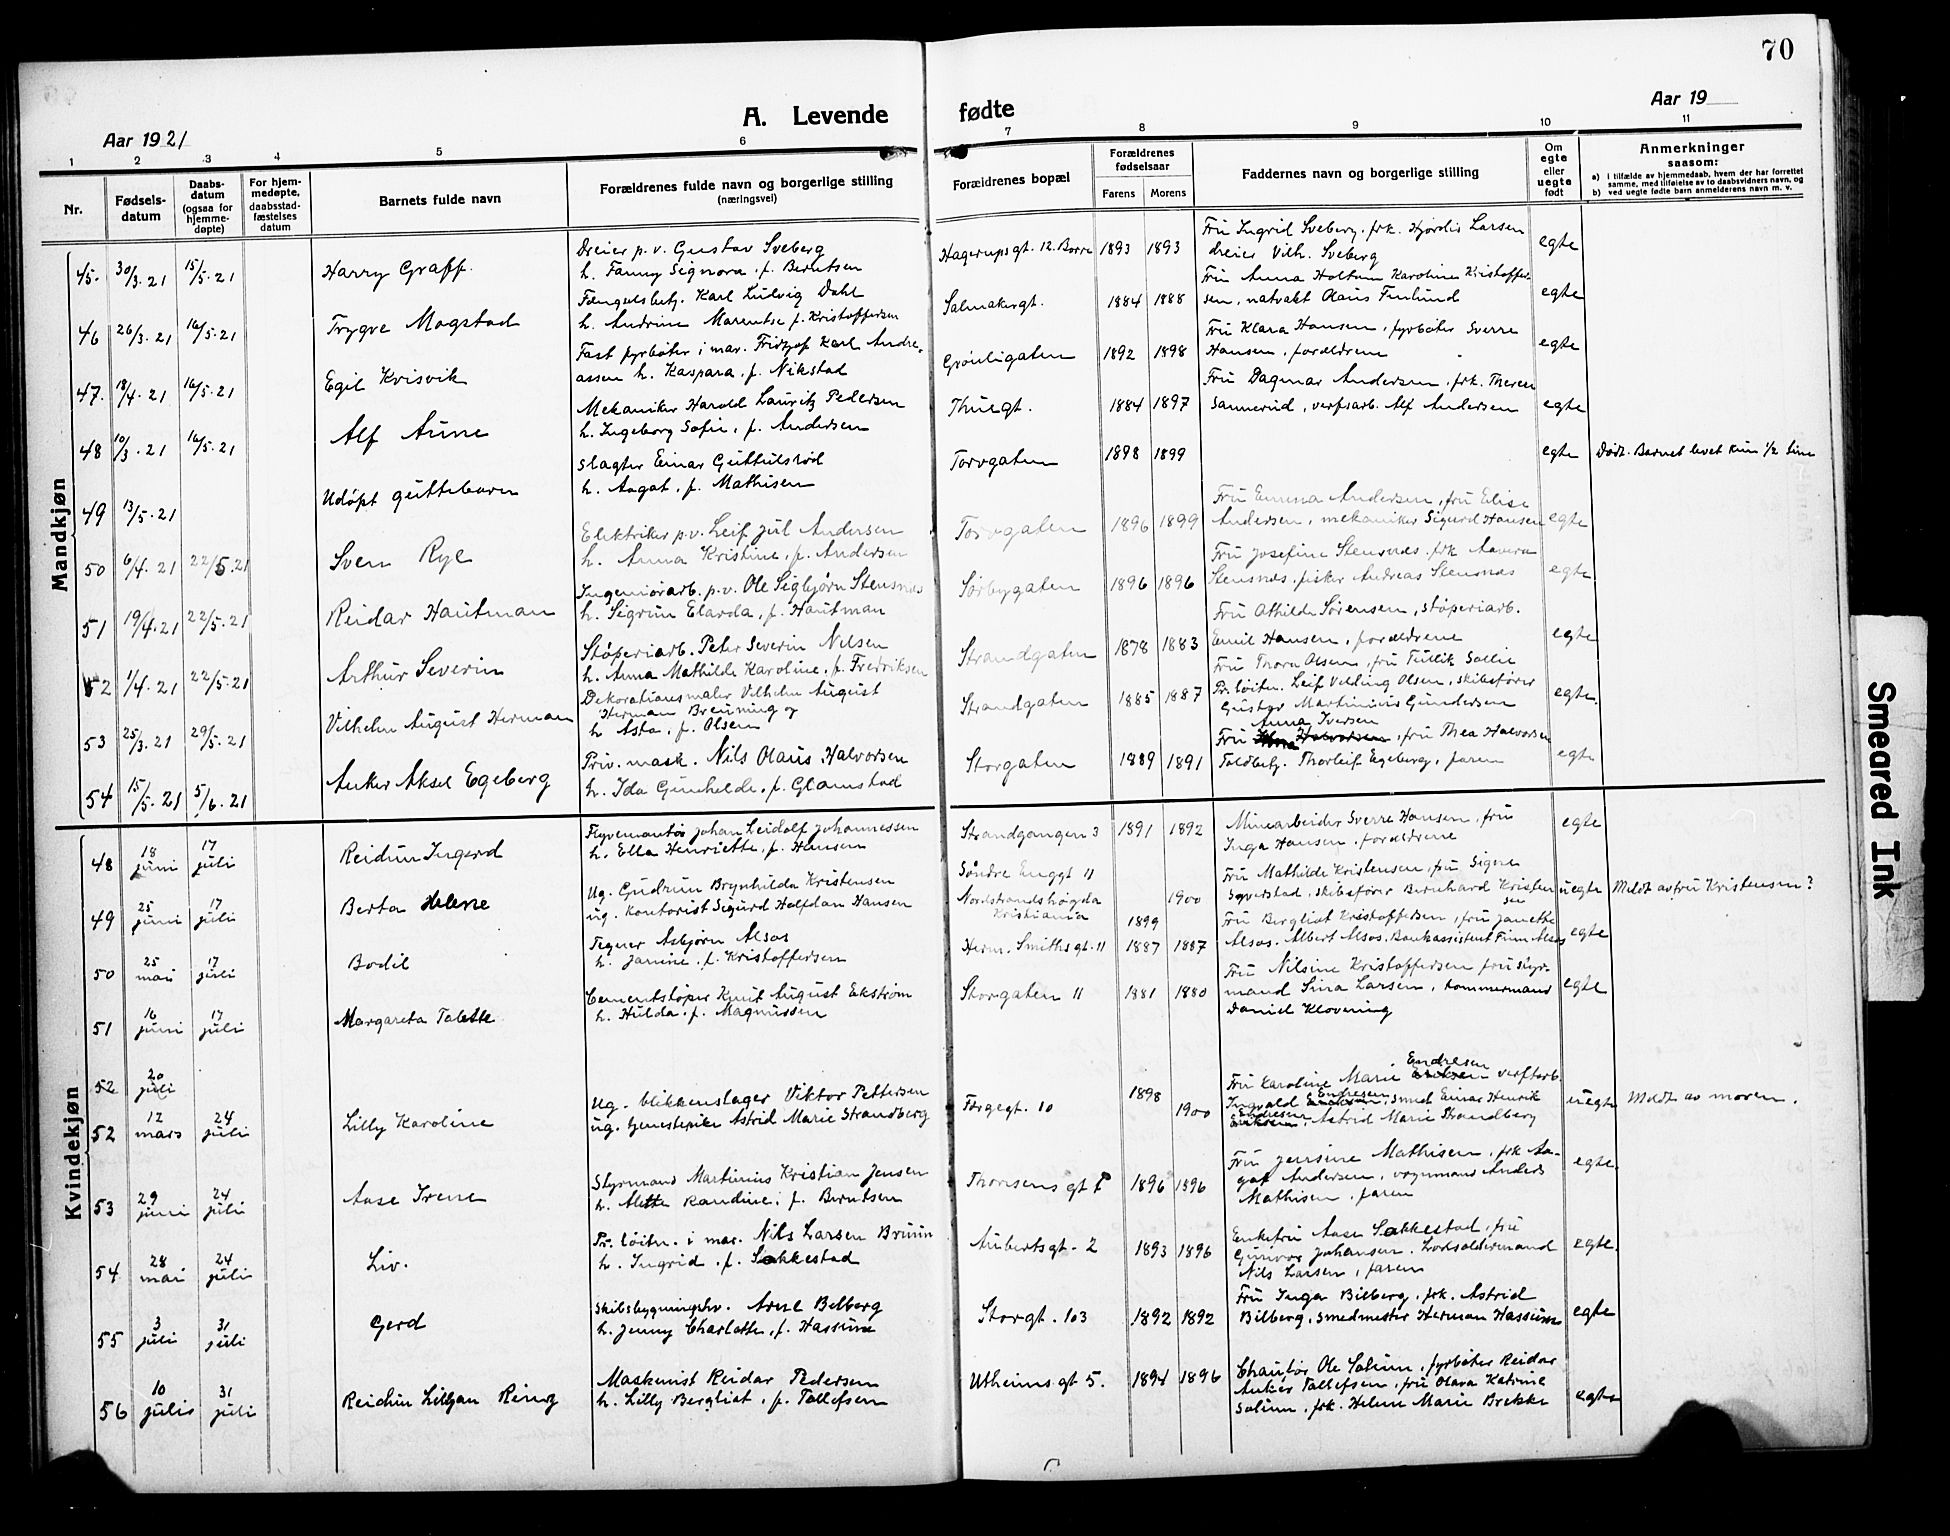 70
A. Levende fødte
Aar 1921
Aar 19
1 2 3 4 5 6 7 8 9 10 11
Nr.
Fødsels-
datum
Daabs-
datum
(ogsaa for
hjemme-
døpte)
For hjem-
medøpte,
daabsstad-
fæstelses
datum
Barnets fulde navn
Forældrenes fulde navn og borgerlige stilling
(næringsvei)
Forældrenes bopæl
Forældrenes
fødselsaar
Farens Morens
Faddernes navn og borgerlige stilling
Om
egte
eller
uegte
født
Anmerkninger
saasom:
a) i tilfælde av hjemmedaab, hvem der har forrettet
samme, med tilføielse av to daabsvidners navn, og
b) ved uegte fødte barn anmelderens navn m. v.
Mandkjøn
45. 30/3.21 15/5.21 Harry Graff.
Dreier p.v. Gustav Sveberg
h. Fanny Signora, f. Berntsen
Hagerupsgt. 12. Borre 1893 1893
Fru Ingrid Sveberg, frk. Hjørdis Larsen
dreier Vilh. Sveberg
egte
46 26/3.21 16/5.21 Trygve Magstad
Fængselsbetj. Karl Ludvig Dahl
h. Andrine Marentse f. Kristoffersen
Salmakergt. 1884 1888
Fru Anna Holtum Karoline Kristoffer-
sen, natvakt Olaus Finlund
egte
47. 18/4.21 16/5.21 Egil Kvisvik
Fast fyrbøter i mar. Fridtjof Karl Andre-
assen h. Kaspara, f. Nikstad
Grønligaten 1892 1898
Fru Klara Hansen, fyrbøter Sverre
Hansen, forældrene
egte
48 10/3.21 16/5.21 Alf Aune
Mekaniker Harald Lauritz Pedersen
h. Ingeborg Sofie, f. Andersen
Thuegt. 1884 1897
Fru Dagmar Andersen, frk. Therese
Sannerud, verfsarb. Alf Andersen
egte
49 13/5.21 Udøpt guttebarn
Slagter Einar Guttulsrød
h. Aagot, f. Mathisen
Torvgaten 1898 1899
egte
Død. Barnet levet kun 1/2 time
50 6/4.21 22/5.21 Sven Rye
Elektriker p.v. Leif Jul Andersen
h. Anna Kristine, f. Andersen
Torvgaten 1896 1899
Fru Emma Andersen, fru Elise
Andersen, mekaniker Sigurd Hansen
egte
51 19/4.21 22/5.21 Reidar Hautman
Ingeniørarb. p.v. Ole Sigbjørn Stensnæs
h. Sigrun Elarda, f. Hautman
Sørbygaten 1896 1896
Fru Josefine Stensnæs, frk Aavera
Stensnæs, fisker Andreas Stensnæs
egte
52 1/4.21 22/5.21 Arthur Severin
Støperiarb. Peter Severin Nilsen
h. Anna Mathilde Karoline, f. Fredriksen
Strandgaten 1878 1883
Fru Othilde Sørensen, støperiarb.
Emil Hansen, forældrene
egte
53 25/3.21 29/5.21 Vilhelm August Herman
Dekorationsmaler Vilhelm August
Herman Breuning og
h. Asta, f. Olsen
Strandgaten 1885 1887
Fru Thora Olsen, fru Tullik Sollie
Pr. løitn. Leif Velding Olsen, skibsfører
Gustav Martinius Gundersen
egte.
54 15/5.21 5/6.21 Anker Aksel Egeberg
Priv. mask. Nils Olaus Halvorsen
h. Ida Gunhelde, f. Glamstad
Storgaten 1889 1891
Anna Iversen
Fru Halvorsen, fru Thea Halvorsen
Toldbetj. Thorleif Egeberg, faren
egte
Kvindekjøn
48 18 juni 17 juli Reidun Ingerd
Flyvemontør Johan Leidolf Johannessen
h. Ella Henriette, f. Hansen
Strandgangen 3 1891 1892
Minearbeider Sverre Hansen, fru
Inga Hansen, forældrene
egte
49 25 juni 17 juli Berta Helene
Ug. Gudrun Brynhilda Kristensen
ug. Kontorist Sigurd Halfdan Hansen
Søndre Enggt 11
Nordstrandshøgda
Kristiania 1899 1900
Fru Mathilde Kristensen, fru Signe
Syverstad, skibsfører Bernhard Kristen
sen
uegte
Meldt av fru Kristensen?
50 25 mai 17 juli Bodil
Tegner Asbjørn Alsos
h. Janine, f. Kristoffersen
Herm. Smithsgt. 11 1887 1887
Fru Bergliot Kristoffersen, fru Janette
Alsos. Albert Alsos. Bankassistent Finn Alsos
egte
51 16 juni 17 juli Margareta Tolette
Cementstøper Knut August Ekstrøm
h. Hulda, f. Magnussen
Storgaten 11 1881 1880
Fru Nilsine Kristoffersen fru styr-
mand Sina Larsen, tømmermand
Daniel Klovening
egte
52 20 juli
52 12 mars 24 juli Lilly Karoline
Ug. blikkenslager Viktor Pettersen
ug. tjenestepike Astrid Marie Strandberg
Fargegt. 10 1898 1900
Endresen
Fru Karoline Marie Eriksen verftarb.
Endresen
Ingvald Eriksen, smed Einar Henrik
Endresen
Eriksen, Astrid Marie Strandberg
uegte
Meldt av moren.
53 29 juni 24 juli Aase Irene
Styrmand Martinius Kristian Jensen
h. Alette Randine, f. Berntsen
Thorsens gt 1896 1896
Fru Jensine Mathisen, frk Aa-
got Andersen, vognmand Anders
Mathisen, faren
egte.
54 28 mai 24 juli Liv.
Pr. løitn. i mar. Nils Larsen Bruun
h. Ingrid, f. Sakkestad
Aubertsgt. 2 1893 1896
Enkefru Aase Sakkestad, fru
Gurivor Johansen. Lodsoldermand
Nils Larsen, faren
egte.
55 3 juli 31 juli Gerd
Skibsbygningskv. Arne Bilberg
h. Jenny Charlotte, f. Hassum
Storgt. 103 1892 1892
Fru Inga Bilberg, frk. Astrid
Bilberg, smedmester Herman Hassum
egte
56 10 juli 31 juli Reidun Lillyan Ring
Maskinist Reidar Pedersen
h. Lilly Bergliot, f. Tollefsen
Utheims gt 5. 1894 1896
Chauffør Ole Solum, fyrbøter Reidar
Anker Tollefsen, fru Olava Katrine
Solum, frk. Helene Marie Brekke
egte
Smeared Ink